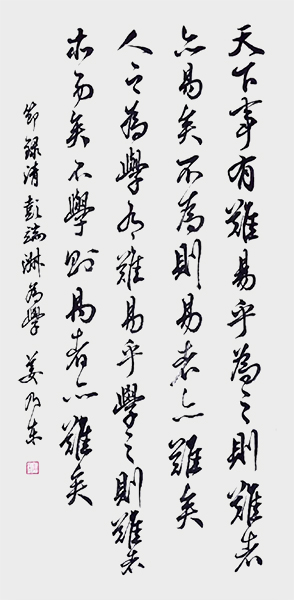 天下事有難易乎為之則難者
亦易矣不為則易者亦難矣
人之為學有難易乎學之則難者
亦易矣不學則易者亦難矣
節録清彭端淑為學 姜乃東